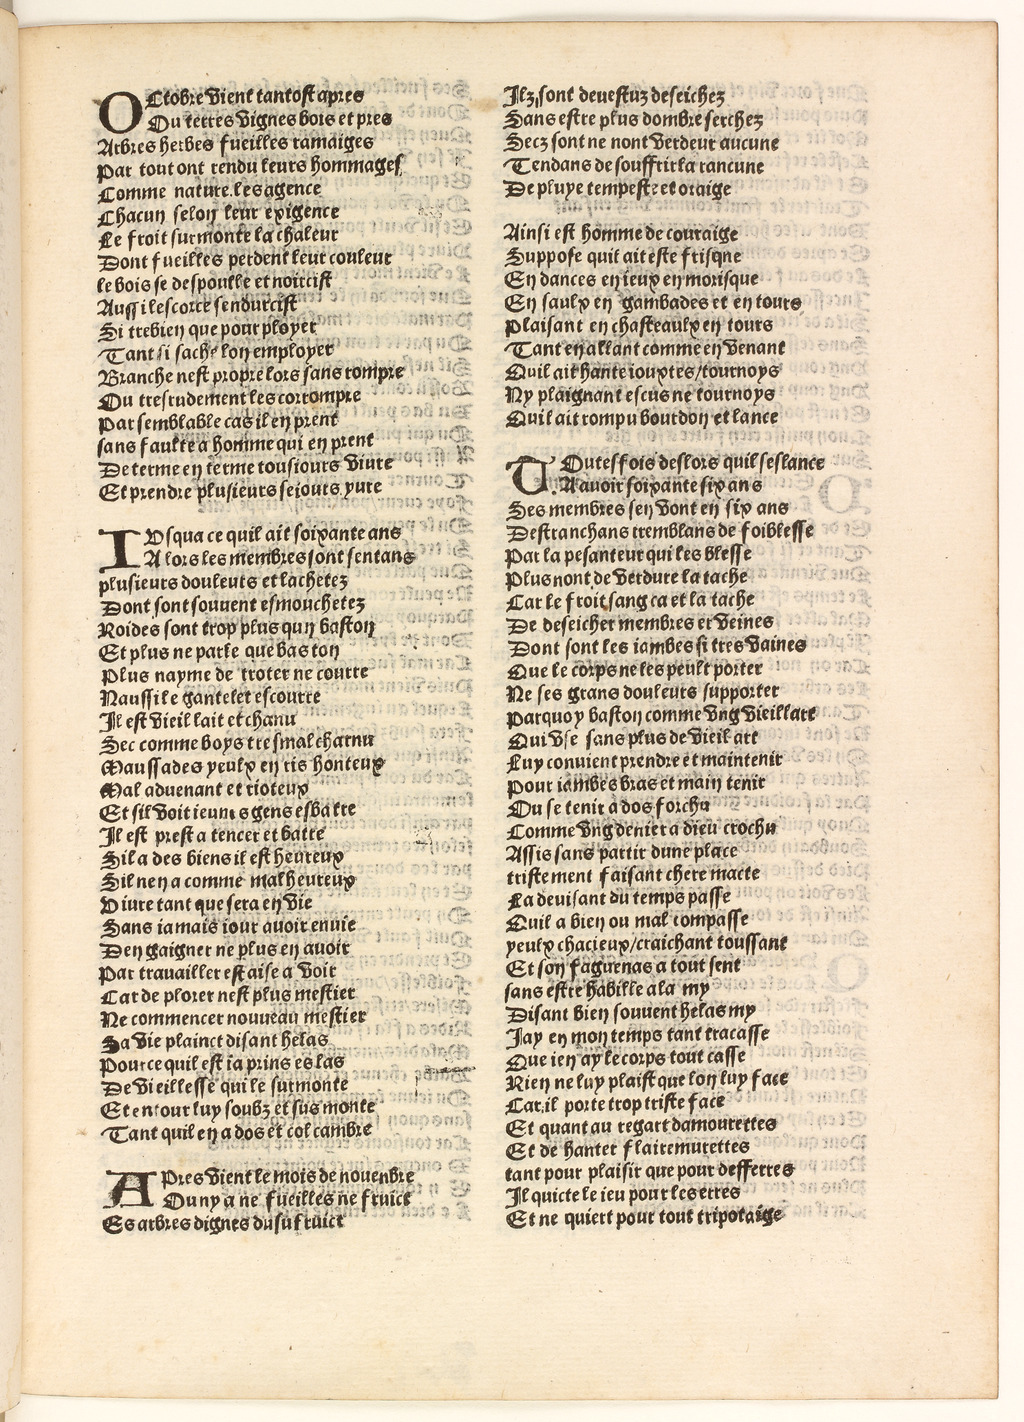 OCtobre vient tantost apres
Ou terres vignes bois et pres
Arbres herbes fueilles ramaiges
Par tout ont rendu leurs hommages
Comme nature les agence
Chacun selon leur exigence
Le froit surmonte la chaleur
Dont fueilles perdent leur couleur
le bois se despoulle et noircist
Aussi lescorce sendurcist
Si trebien que pour ployer
Tant si sache lon employer
Branche nest propre lors sans rompre
Ou tresrudement les corrompre
Par semblable cas il en prent
sans faulte a homme qui en prent
De terme en terme tousiours viure
Et prendre plusieurs seiours yure
IVsqua ce quil ait soixante ans
Alors les membres sont sentans
plusieurs douleurs et lachetez
Dont sont souuent esmouchetez
Roides sont trop plus qun baston
Et plus ne parle que bas ton
Plus nayme de troter ne courre
Naussi le gantelet escourre
Il est vieil lait et chanu
Sec comme boys tresmal charnu
Maussades yeulx en ris honteux
Mal aduenant et rioteux
Et sil voit ieunes gens esbatre
Il est prest a tencer et batre
Sil a des biens il est heureux
Sil nen a comme malheureux
Viure tant que sera en vie
Sans iamais iour auoir enuie
Den gaigner ne plus en auoir
Par trauailler est aise a voir
Car de plorer nest plus mestier
Ne commencer nouueau mestier
Sa vie plainct disant helas
Pource quil est ia prins es las
De vieillesse qui le surmonte
Et entour luy soubz et sus monte
Tant quil en a dos et col cambre
APres vient le mois de nouenbre
Ou ny a ne fueilles ne fruict
Es arbres dignes dusufruict
Ilz sont deuestuz deseichez
Sans estre plus dombre serchez
Secz sont ne nont verdeur aucune
Tendans de souffrir la rancune
De pluye tempeste et oraige
Ainsi est homme de couraige
Suppose quil ait este frisque
En dances en ieux en morisque
En saulx en gambades et en tours
Plaisant en chasteaulx en tours
Tant en allant comme en venant
Quil ait hante iouxtes/tournoys
Ny plaignant escus ne tournoys
Quil ait rompu bourdon et lance
TOutesfois deslors quil seslance
A auoir soixante six ans
Ses membres sen vont en six ans
Destranchans tremblans de foiblesse
Par la pesanteur qui les blesse
Plus nont de verdure la tache
Car le froit sang ca et la tache
De deseicher membres et veines
Dont sont les iambes si tres vaines
Que le corps ne les peult porter
Ne ses grans douleurs supporter
Parquoy baston comme vng vieillart
Qui vse sans plus de vieil art
Luy conuient prendre et maintenir
Pour iambes bras et main tenir
Ou se tenir a dos forchu
Comme vng denier a dieu crochu
Assis sans partir dune place
tristement faisant chere macte
La deuisant du temps passe
Quil a bien ou mal compasse
yeulx chacieux/craichant toussant
Et son faguenas a tout sent
sans estre habille a la my
Disant bien souuent helas my
Jay en mon temps tant tracasse
Que ien ay le corps tout casse
Rien ne luy plaist que lon luy face
Car il porte trop triste face
Et quant au regart damourettes
Et de hanter flairemurettes
tant pour plaisir que pour defferres
Il quicte le ieu pour les erres
Et ne quiert pour tout tripotaige